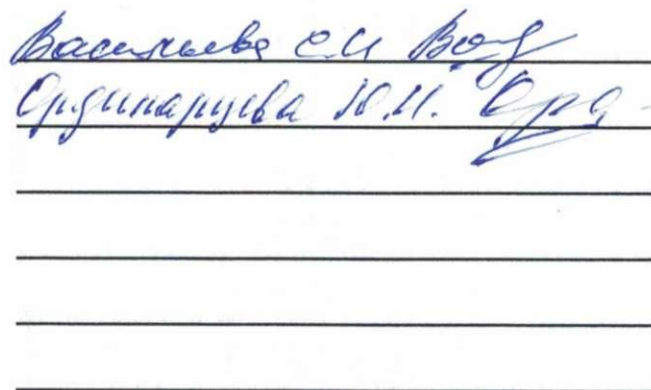 Васильева С.И
Ординарцева Ю.И.